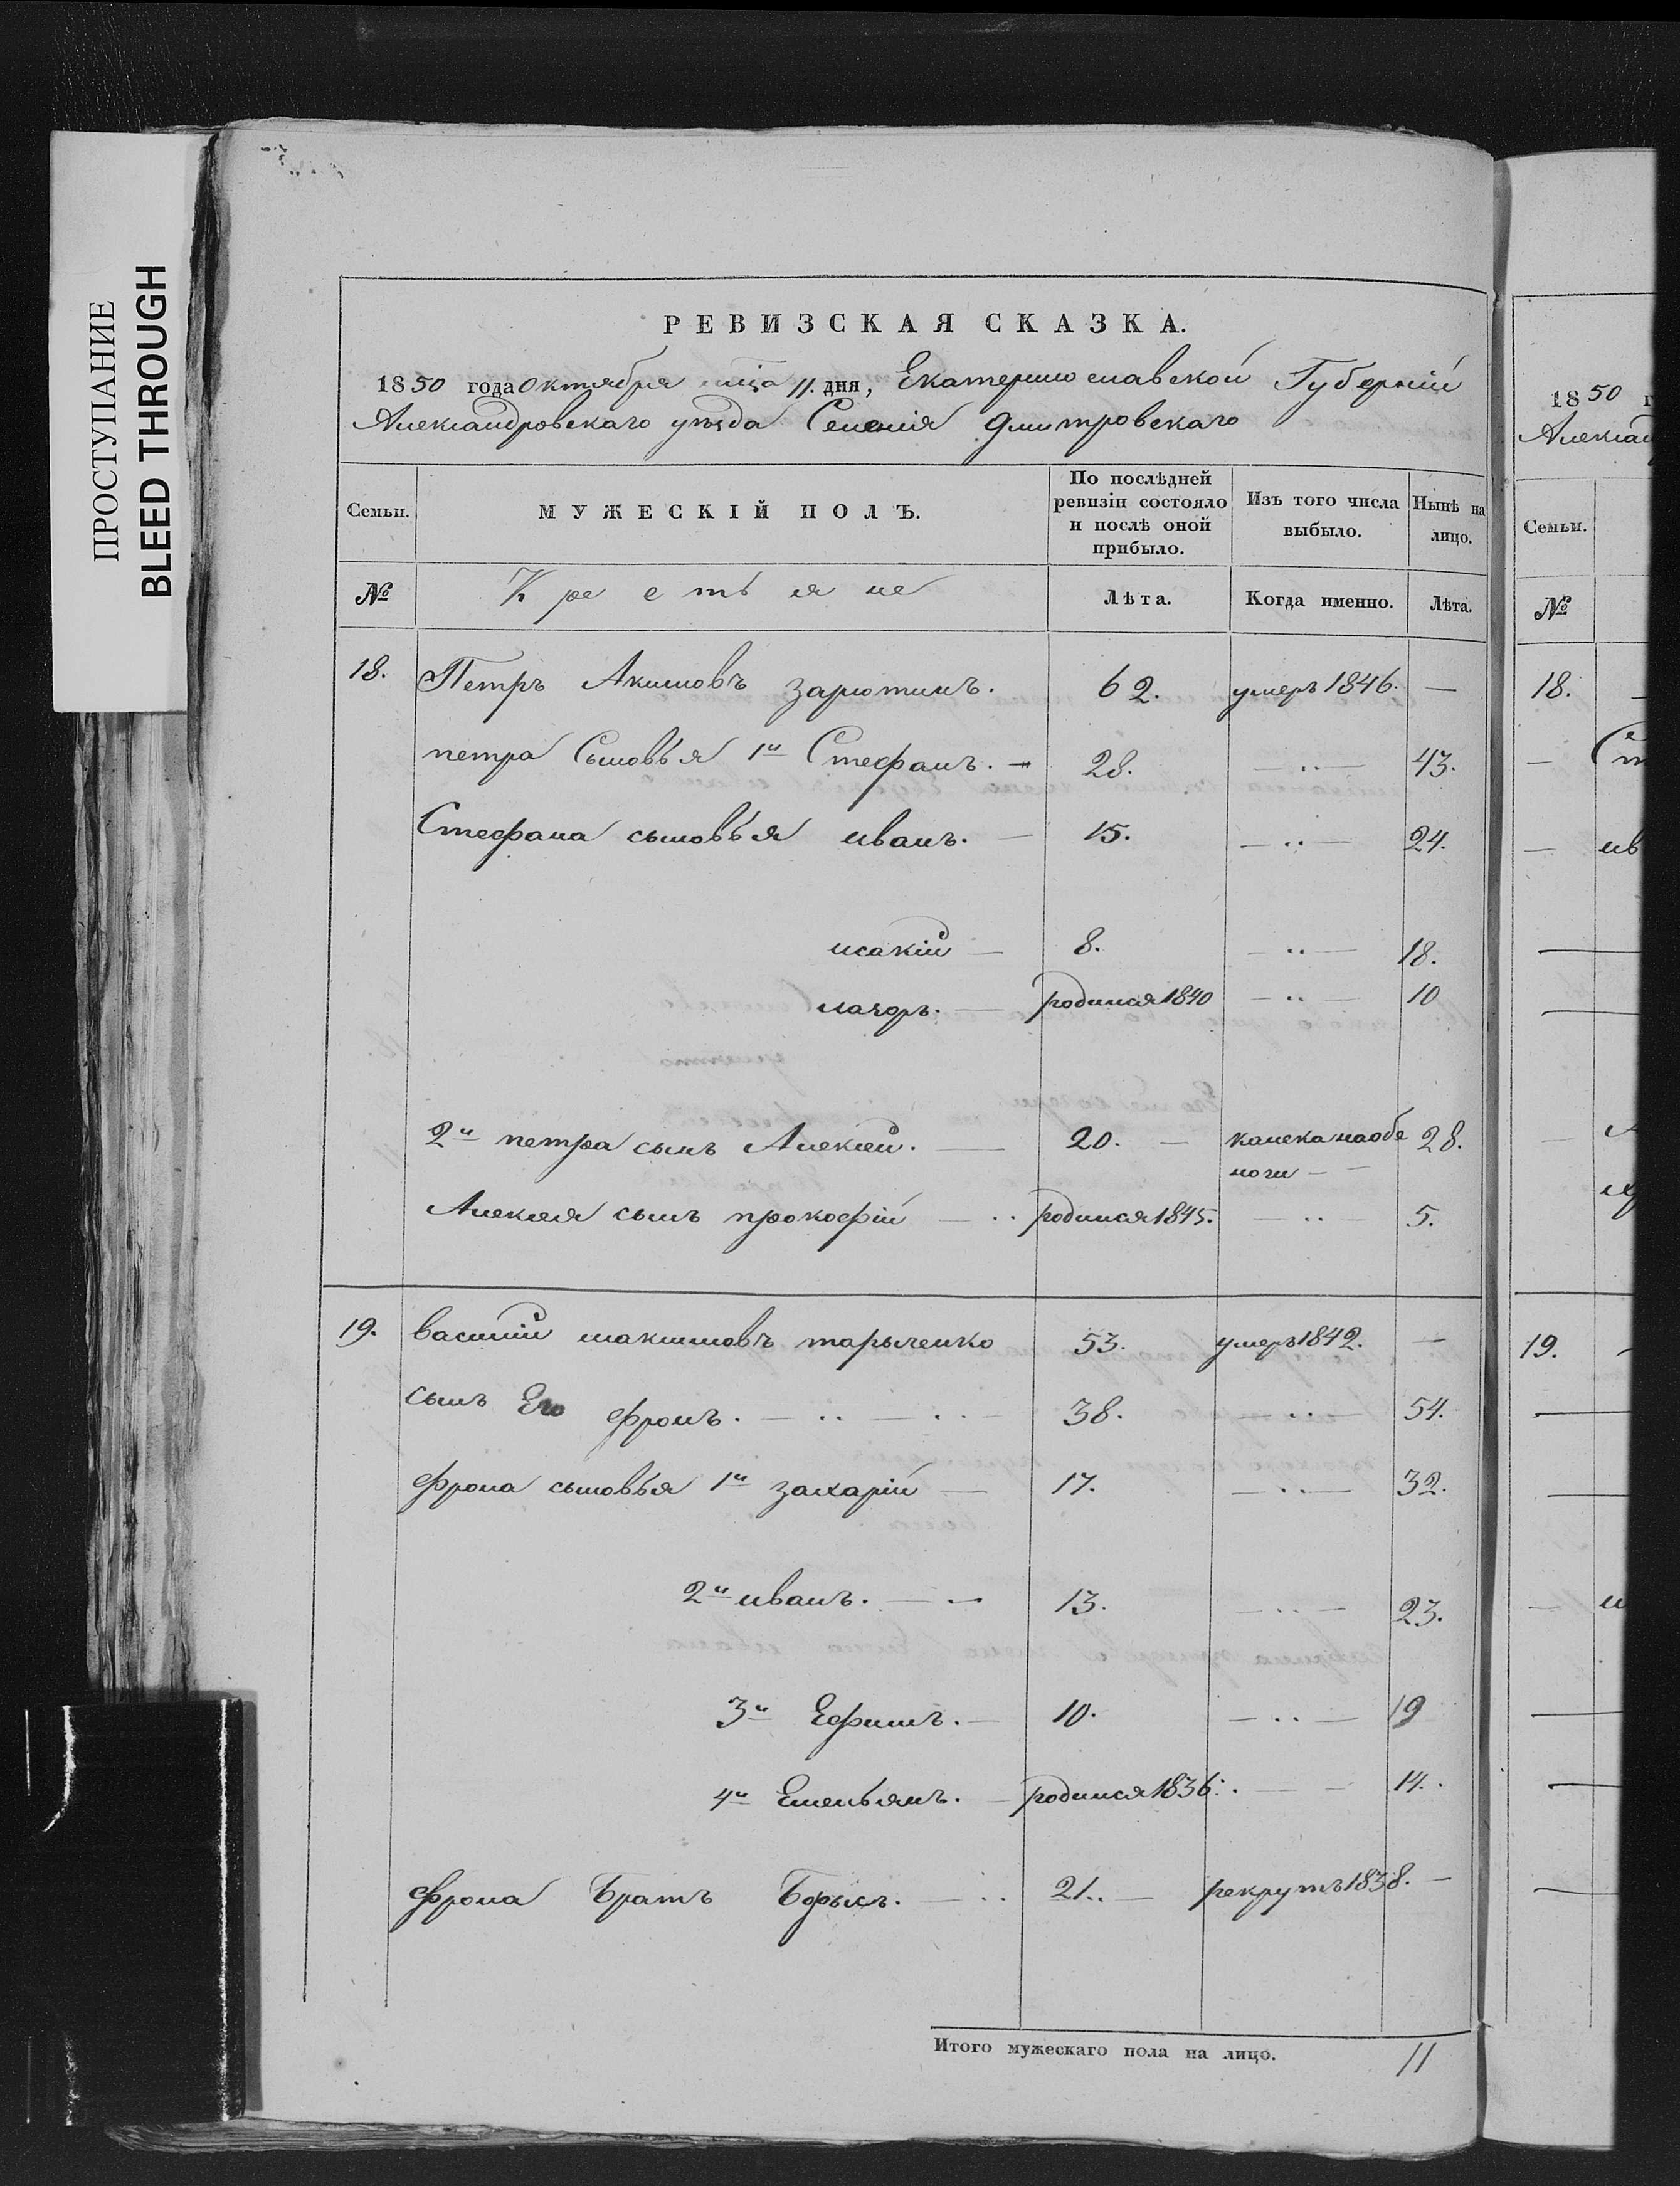 ПРОСТУПАНИЕ
BLEED THROUGH
РЕВИЗСКАЯ СКАЗКА.
1850 года октября мца 11. дня, Екатеринославской Губерніи
Александровскаго уѣзда Селенія Дмитровскаго
Семьи. МУЖЕСКІЙ ПОЛЪ. По послѣдней ревизіи состояло и послѣ оной прибыло. Изъ того числа выбыло. Нынѣ на лицо.
№ Крестьяне Лѣта. Когда именно. Лѣта.
18. Петръ Акимовъ зарютинъ. 62. умеръ 1846. —
петра Сыновья 1й Стефанъ. — 28. — .. — 43.
Стефана сыновья иванъ. — 15. — .. — 24.
исакій — 8. — .. — 18.
лазоръ. — родился 1840 — .. — 10
2й петра сынъ Алексей. — 20. — калека на обе 28.
ноги — —
Алексея сынъ прокофій — .. родился 1845. — .. — 5.
19. василій максимовъ тарыченко 53. умеръ 1842. —
сынъ Его фролъ. — .. — .. — 38. — .. — 54.
фрола сыновья 1й захарій — 17. — .. — 32.
2й иванъ. — .. 13. — .. — 23.
3й Ефимъ. — 10. — .. — 19
4й Емельянъ. — родился 1836. . — — 14.
фрола Братъ — .. 21. — рекрутъ 1838. —
Итого мужескаго пола на лицо. 11
1850 г
Александ
Семьи.
№
18. —
— Ст
— ив
19. —